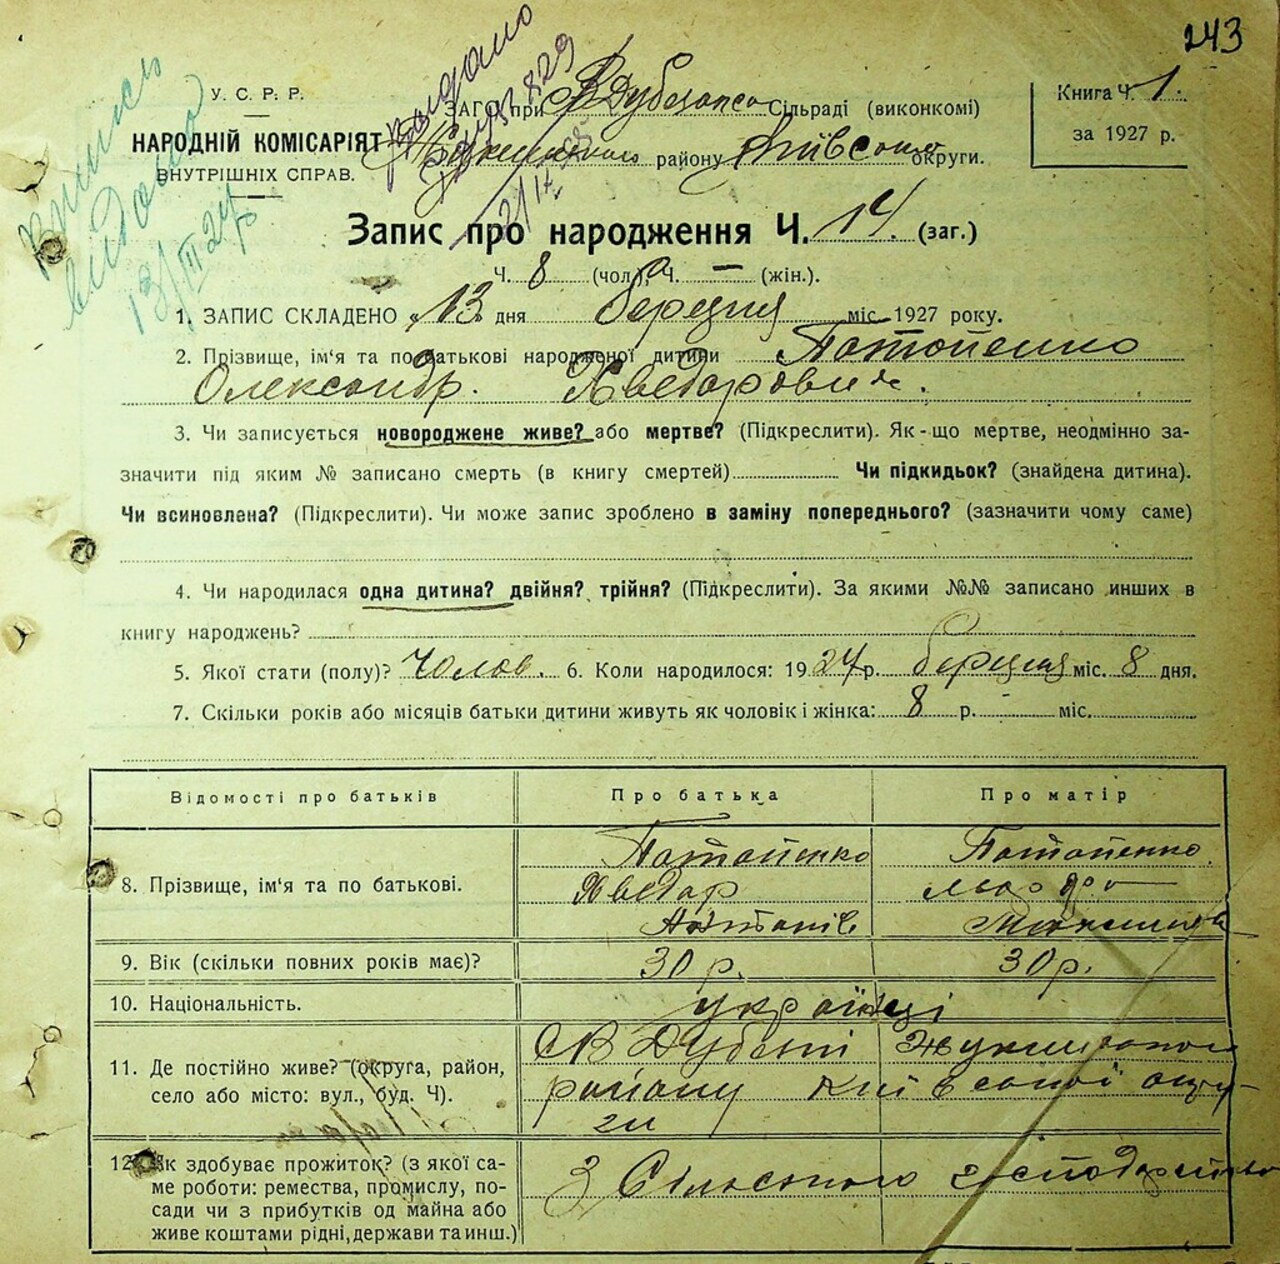 243
Випись
видано
13/III 24 р
видано
829
У. С. Р. Р.
НАРОДНІЙ КОМІСАРІЯТ
ВНУТРІШНІХ СПРАВ.
ЗАГС при В Дубечанск Сільраді (виконкомі)
району Київської округи.
Книга Ч. 1.
за 1927 р.
Запис про народження Ч. 14. (заг.)
Ч. 8 (чол.), Ч. — (жін.).
1. ЗАПИС СКЛАДЕНО „13" дня березня міс. 1927 року.
2. Прізвище, ім'я та по батькові народженої дитини Потопенко
Олександр. Хведорович.
3. Чи записується новороджене живе? або мертве? (Підкреслити). Як-що мертве, неодмінно за-
значити під яким № записано смерть (в книгу смертей) Чи підкидьок? (знайдена дитина).
Чи всиновлена? (Підкреслити). Чи може запис зроблено в заміну попереднього? (зазначити чому саме)
4. Чи народилася одна дитина? двійня? трійня? (Підкреслити). За якими №№ записано инших в
книгу народжень?
5. Якої стати (полу)? Чолов. 6. Коли народилося: 1927 р. березня міс. 8 дня.
7. Скільки років або місяців батьки дитини живуть як чоловік і жінка: 8 р. міс.
Відомості про батьків Про батька Про матір
8. Прізвище, ім'я та по батькові. Потопенко Хведор Потопенко
9. Вік (скільки повних років має)? 30 р. 30 р.
10. Національність. українці
11. Де постійно живе? (округа, район,
село або місто: вул., буд. Ч).
С В Дубечні Жукинського
району Київської окру-
ги
12. Як здобуває прожиток? (з якої са-
ме роботи: ремества, промислу, по-
сади чи з прибутків од майна або
живе коштами рідні, держави та инш.)
З Сільського господарства